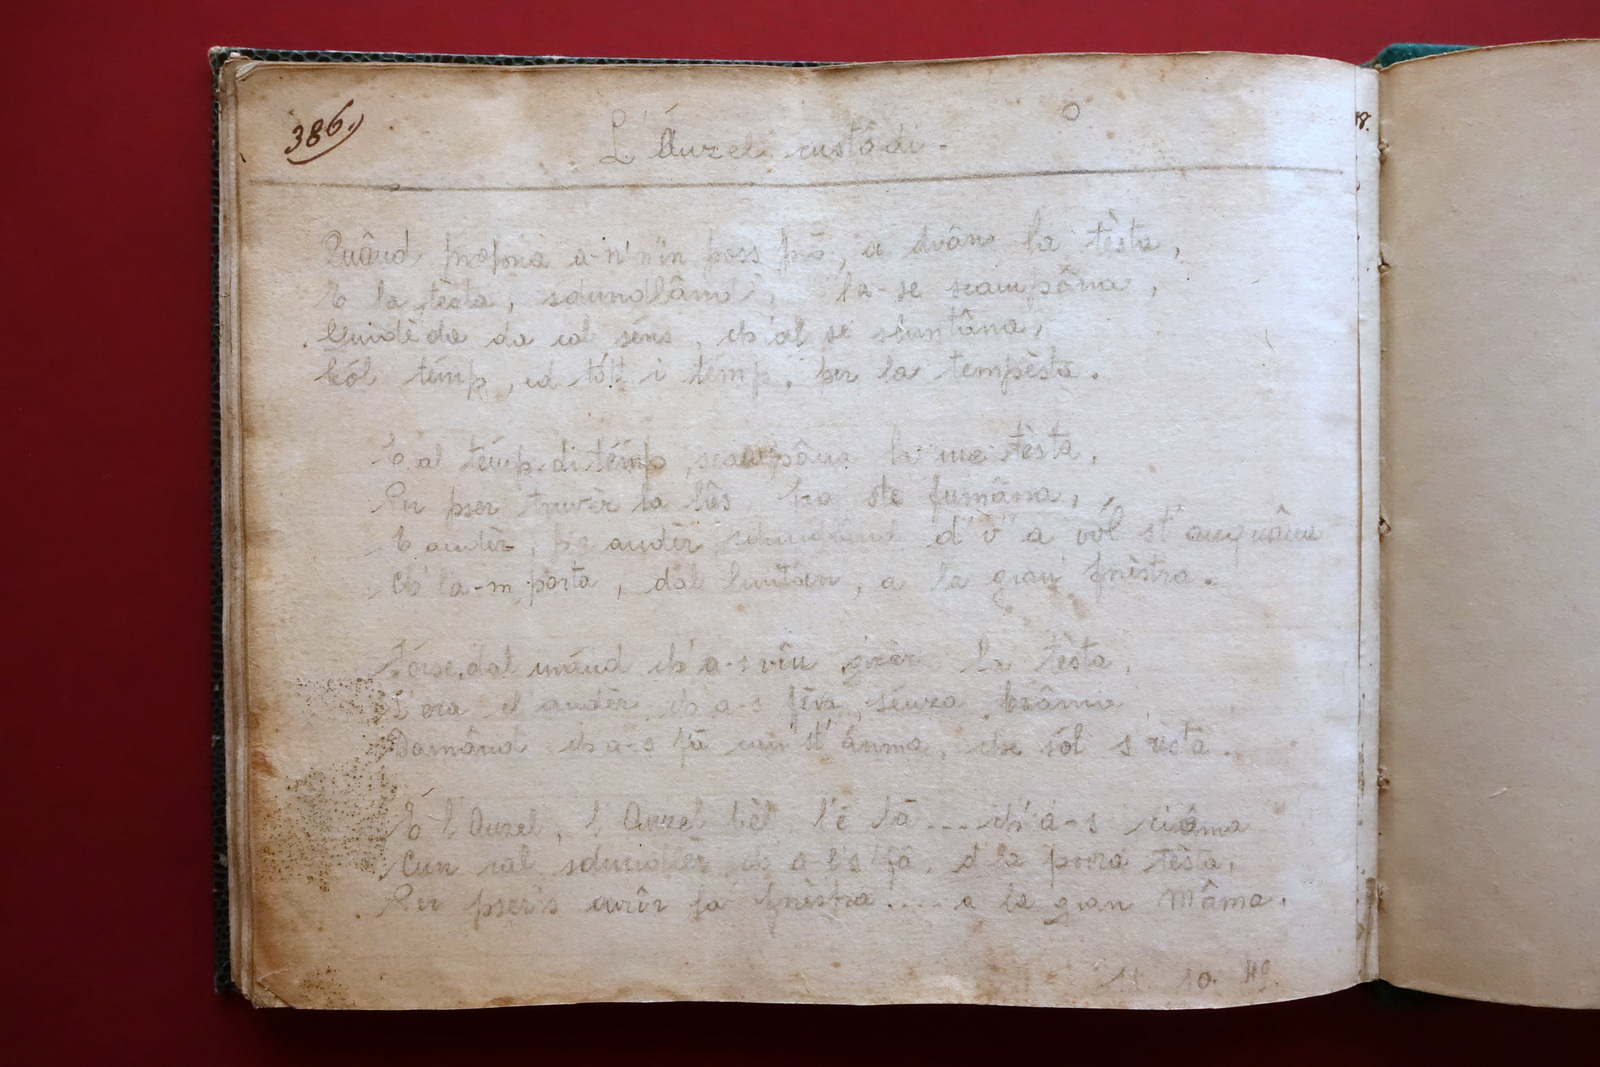 386.)
L'Ânzel custôdi.
Quând propria a-n'n'in poss prô, a drôve la tèsta,
E la tèsta, sdundlând, la-se scampâna,
Guidèda da cal séns, ch'al se sluntâna,
Cól témp, ed tótt i témp, per la tempèsta.
E al témp di témp, scampâna la me tèsta,
Per pser truvèr la lûs tra ste fumâna,
E andèr, per andèr, sdundlând d'v' a vól st'
Ch'la-m porta, dal luntân, a la gran fnèstra.
Fórse, dal mônd ch'a-s vîn girèr la tèsta,
L'era el andèr ch'a-s fêva, sénza brâma
Damând ch'a-s fà cun st'ânma, che sôl s'resta.
E l'Ânzel, l'Ânzel bèl, l'è là... ch'a-s ciâma
Cun cal sdundlèr ch'a-l's fà, d'la povra tèsta,
Per pser's avrîr la fnèstra.... a la gran Mâma.
11. 10. 49.